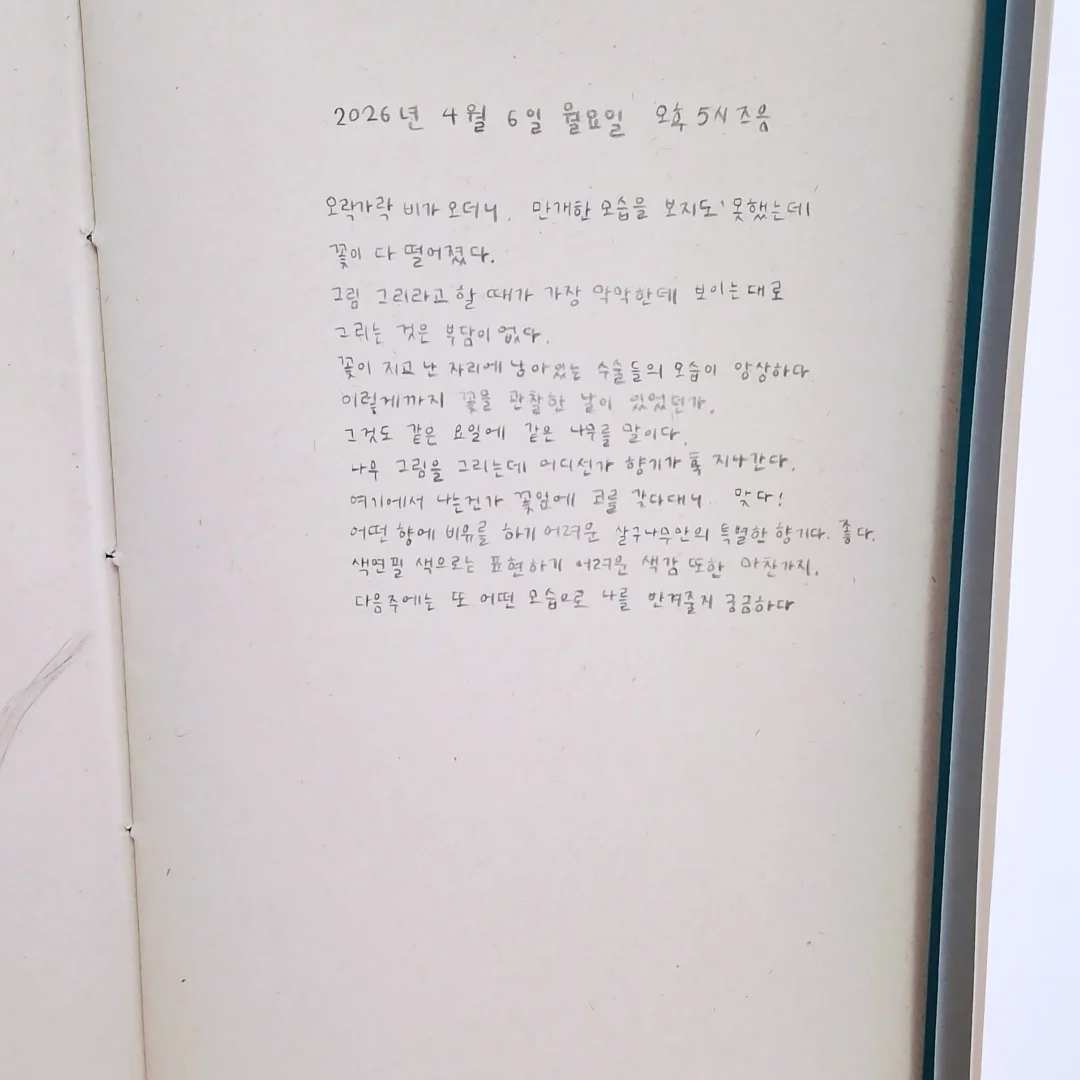 2026년 4월 6일 월요일 오후 5시 즈음
오락가락 비가 오더니, 만개한 모습을 보지도 못했는데
꽃이 다 떨어졌다.
그림 그리라고 할 때가 가장 막막한데 보이는대로
그리는 것은 부담이 없다.
꽃이 지고 난 자리에 남아있는 수술들의 모습이 앙상하다
이렇게까지 꽃을 관찰한 날이 있었던가.
그것도 같은 요일에 같은 나무를 말이다.
나무 그림을 그리는데 어디선가 향기가 훅 지나간다.
여기에서 나는건가 꽃잎에 코를 갖다대니.. 맞다!
어떤 향에 비유를 하기 어려운 살구나무만의 특별한 향기다. 좋다.
색연필 색으로는 표현하기 어려운 색감 또한 마찬가지.
다음주에는 또 어떤 모습으로 나를 반겨줄지 궁금하다